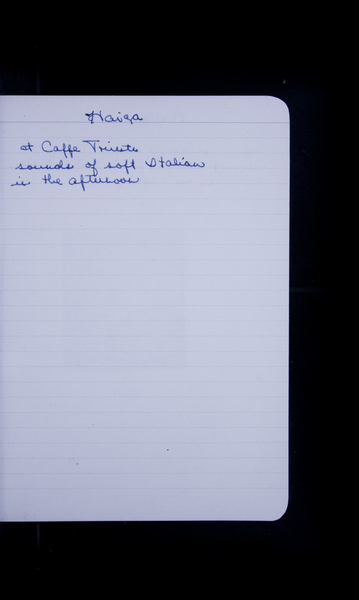 Haiga
at Caffe Trieste
sounds of soft Italian
in the afternoon